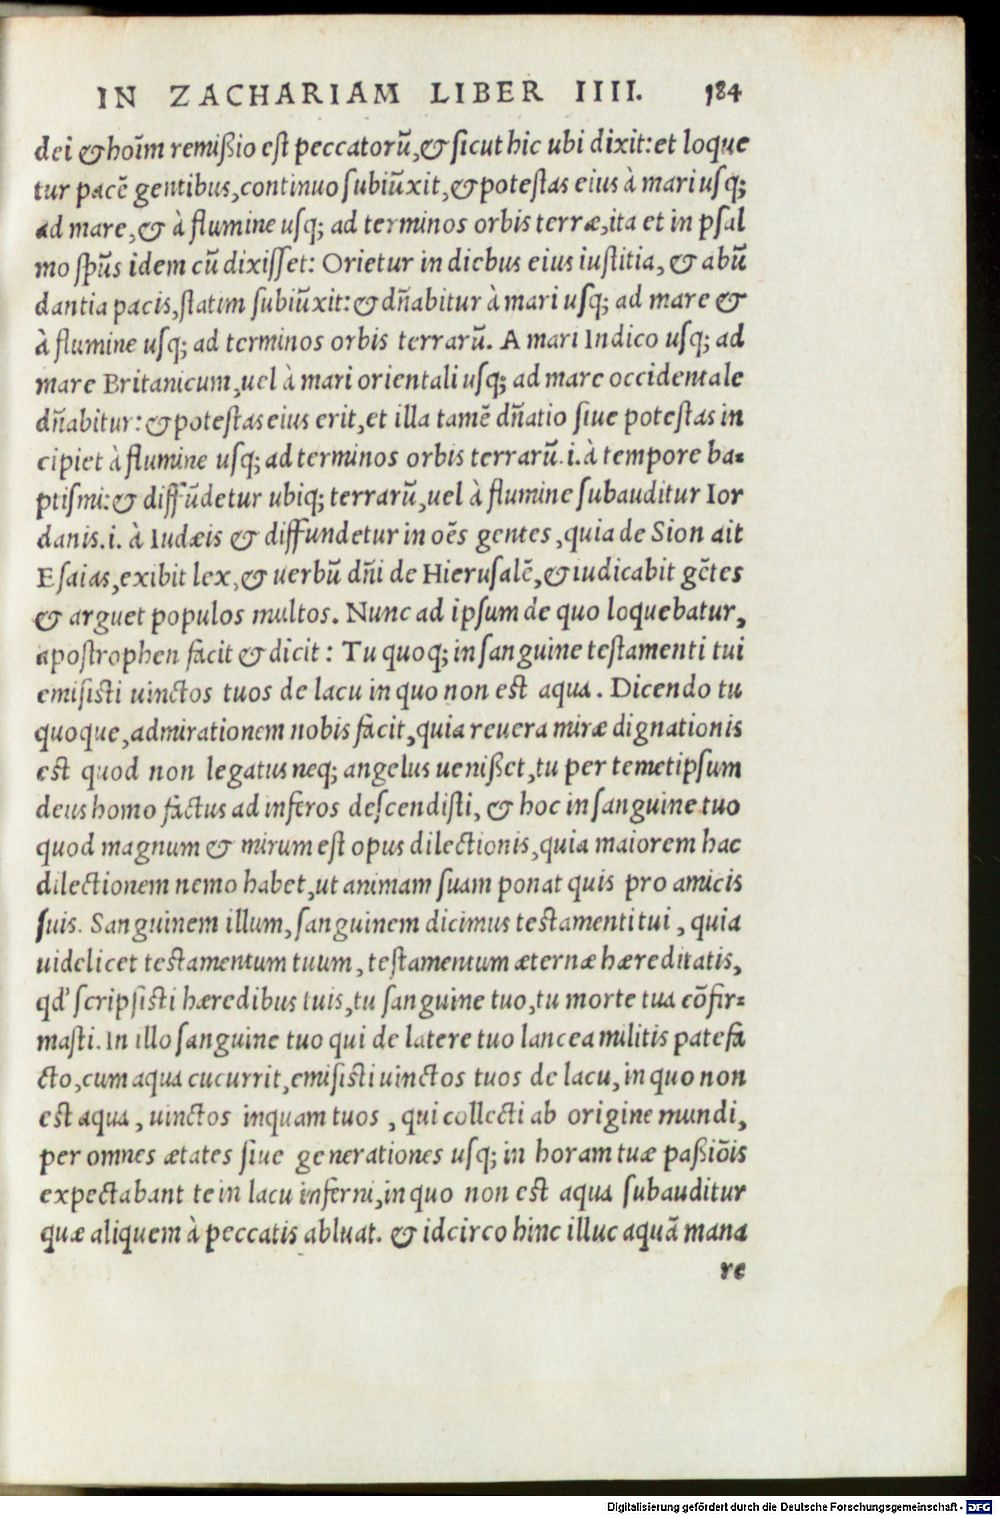 IN ZACHARIAM LIBER IIII. 184
dei & hoīm remißio est peccatorū, & sicut hic ubi dixit: et loque
tur pacē gentibus, continuo subiūxit, & potestas eius à mari usq;
ad mare, & à flumine usq; ad terminos orbis terræ, ita et in psal
mo sp̄us idem cū dixisset: Orietur in diebus eius iustitia, & abū
dantia pacis, statim subiūxit: & dn̄abitur à mari usq; ad mare &
à flumine usq; ad terminos orbis terrarū. A mari Indico usq; ad
mare Britanicum, uel à mari orientali usq; ad mare occidentale
dn̄abitur: & potestas eius erit, et illa tamē dn̄atio siue potestas in
cipiet à flumine usq; ad terminos orbis terrarū. i. à tempore ba-
ptismi: & diffūdetur ubiq; terrarū, uel à flumine subauditur Ior
danis. i. à Iudæis & diffundetur in oēs gentes, quia de Sion ait
Esaias, exibit lex, & uerbū dn̄i de Hierusalē, & iudicabit gētes
& arguet populos multos. Nunc ad ipsum de quo loquebatur,
apostrophen facit & dicit: Tu quoq; in sanguine testamenti tui
emisisti uinctos tuos de lacu in quo non est aqua. Dicendo tu
quoque, admirationem nobis facit, quia reuera miræ dignationis
est quod non legatus neq; angelus uenißet, tu per temetipsum
deus homo factus ad inferos descendisti, & hoc in sanguine tuo
quod magnum & mirum est opus dilectionis, quia maiorem hac
dilectionem nemo habet, ut animam suam ponat quis pro amicis
suis. Sanguinem illum, sanguinem dicimus testamenti tui, quia
uidelicet testamentum tuum, testamentum æternæ hæreditatis,
qd' scripsisti hæredibus tuis, tu sanguine tuo, tu morte tua cōfir-
masti. In illo sanguine tuo qui de latere tuo lancea militis patefa
cto, cum aqua cucurrit, emisisti uinctos tuos de lacu, in quo non
est aqua, uinctos inquam tuos, qui collecti ab origine mundi,
per omnes ætates siue generationes usq; in horam tuæ paßiōis
expectabant te in lacu inferni, in quo non est aqua subauditur
quæ aliquem à peccatis abluat. & idcirco hinc illuc aquā mana
re
Digitalisierung gefördert durch die Deutsche Forschungsgemeinschaft - DFG